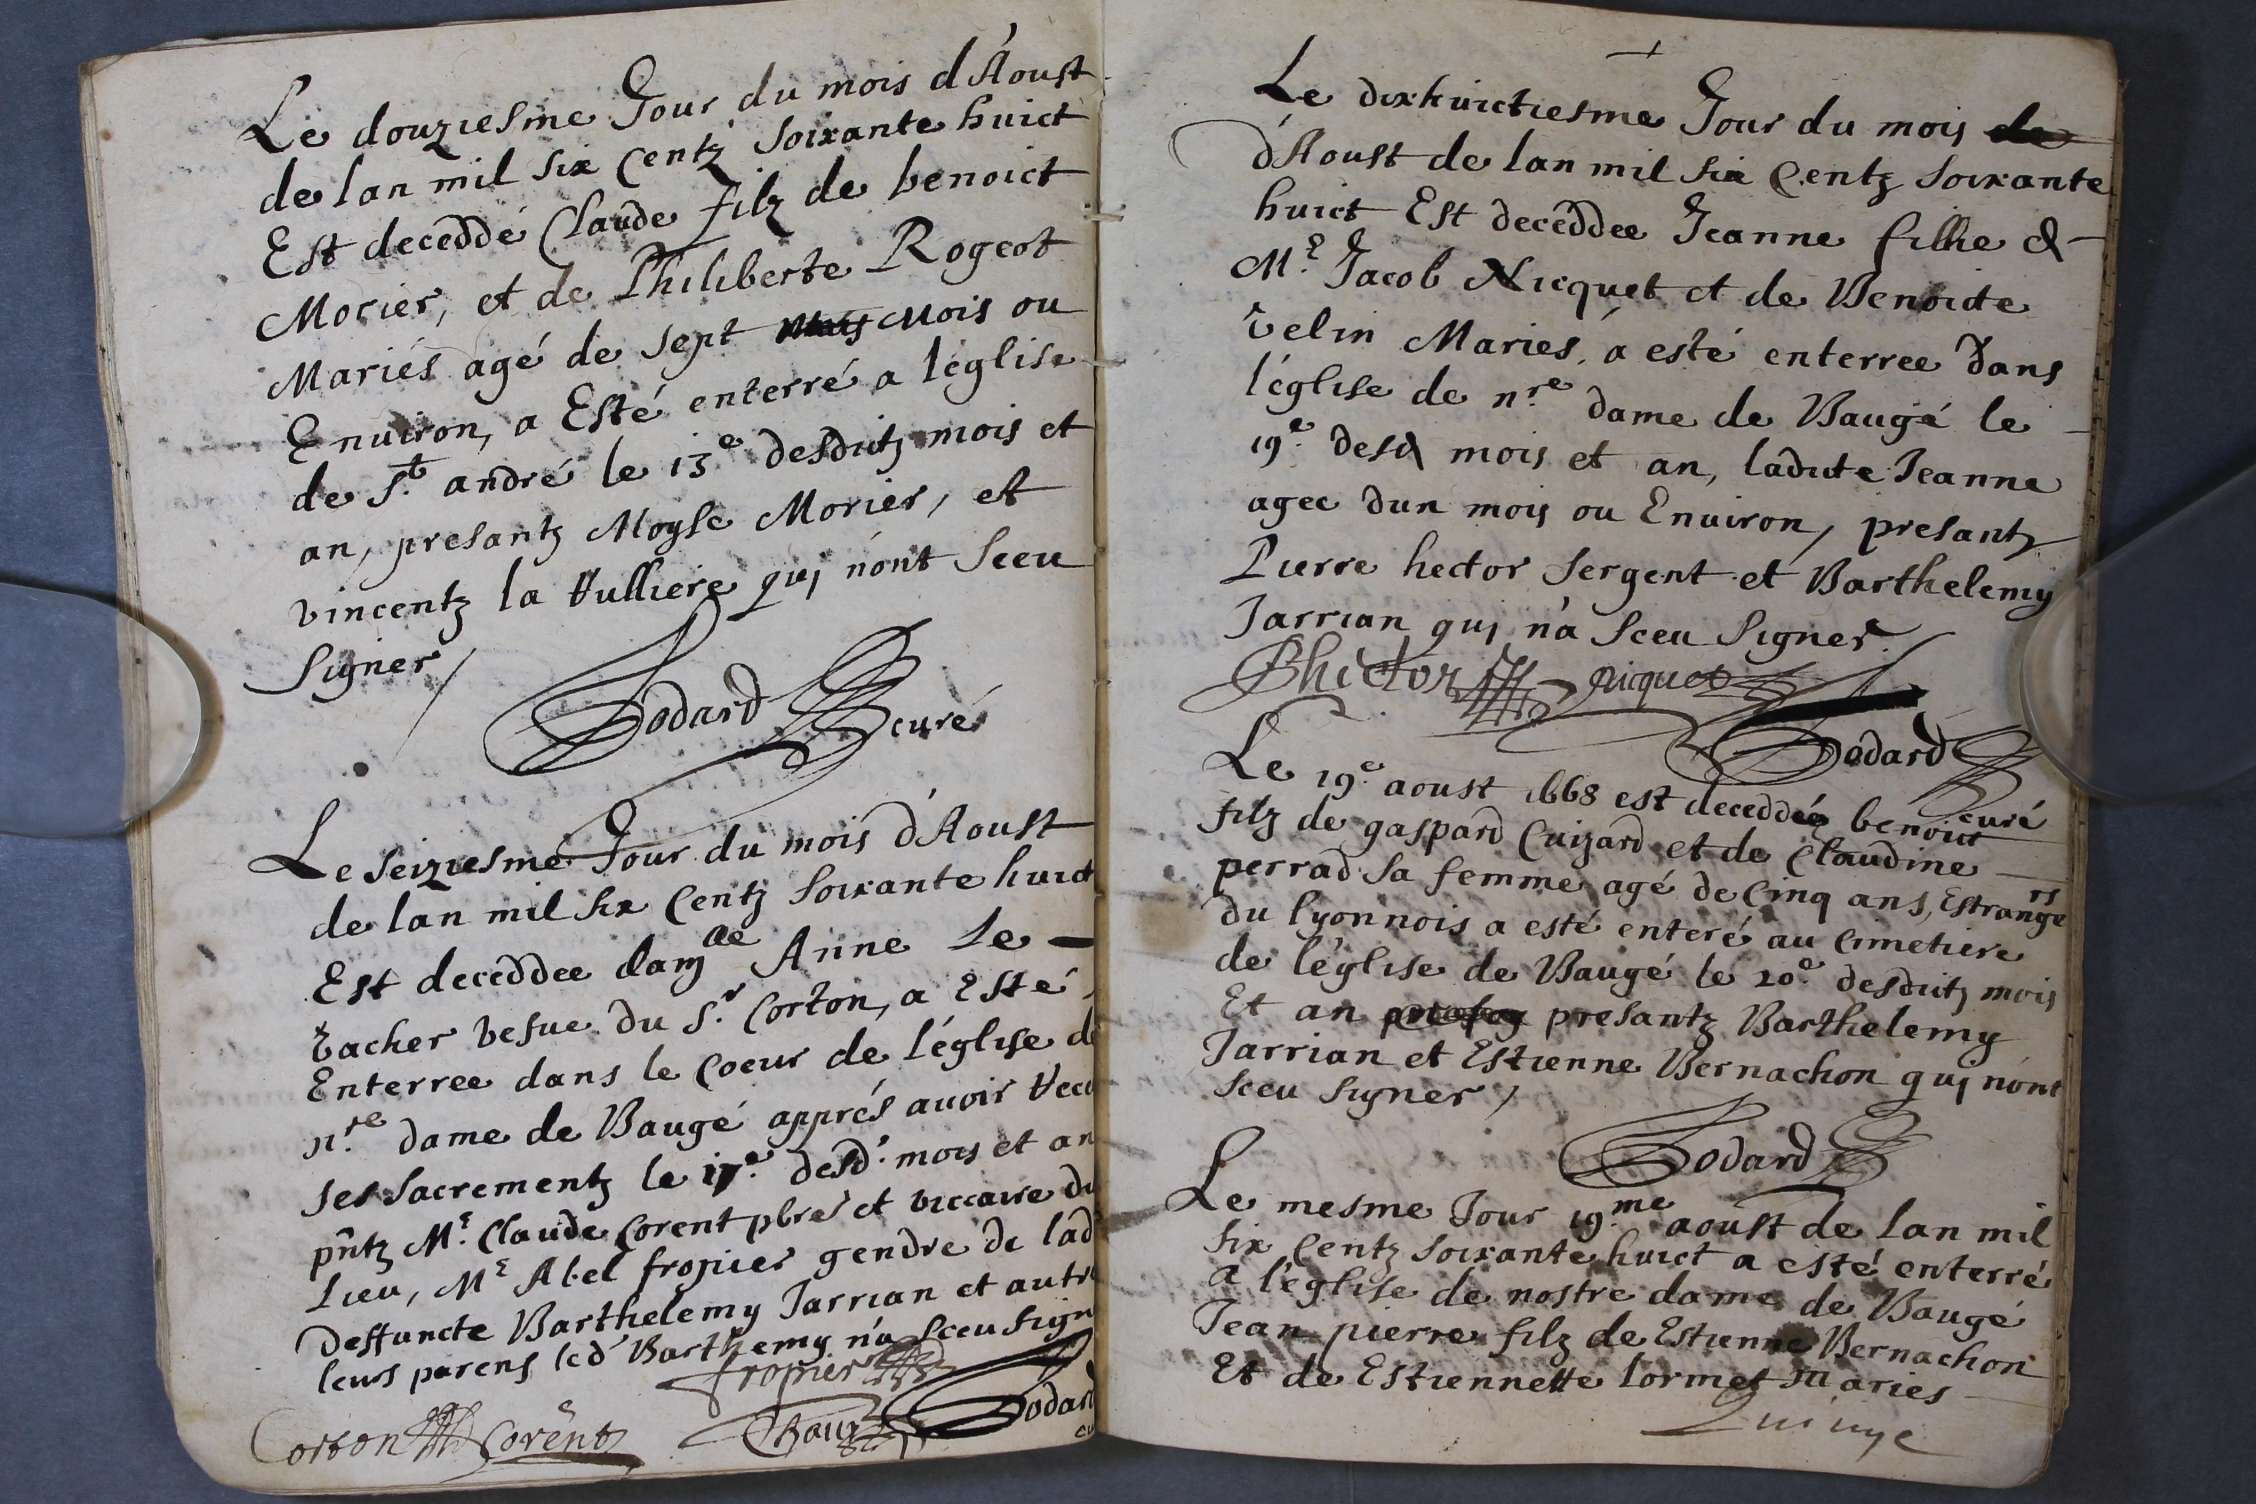 Le douziesme Jour du mois d'Aoust
de lan mil six Centz soixante huict
Est deceddé Claude filz de benoict
Morier, et de Philiberte Rogeot
Mariés agé de sept mois mois ou
Enuiron, a Esté enterré a l'eglise
de St. andré le 13e desditz mois et
an, presantz Moyse Morier, et
vincentz la Vulliere quj n'ont sceu
signer /
Bodard curé
Le seiziesme Jour du mois d'Aoust
de lan mil six Centz soixante huict
Est deceddee damlle Anne Le
tacher vefue du Sr. Corton, a Esté
Enterree dans le Coeur de l'église de
nre. dame de Baugé apprés auoir Recu
ses sacrementz le 17e. desd. mois et an
pntz Mr. Claude Corent pbre et viccaire du
Lieu, Mr Abel fropier gendre de lad
deffuncte Barthelemy Jarrian et autre
leurs parens led Barthemy n'a sceu sign
fropier
Corton Corent Bodard
+
Le dixhuictiesme Jour du mois de
d'Aoust de lan mil six Centz soixante
huict Est deceddee Jeanne fillie d
Mr. Jacob Nicquet et de Benoite
velin Mariés, a esté enterree dans
l'église de nre. dame de Baugé le
19e. desd mois et an, ladite Jeanne
agee dun mois ou Enuiron, presantz
Pierre hector sergent et Barthelemy
Jarrian quj n'a sceu signer.
Phector Nicquet
Bodard curé
Le 19e. aoust 1668 est deceddé benoict
filz de gaspard Cuizard et de Claudine
perrad sa femme agé de Cinq ans, Estrangers
du lyonnois a esté enteré au Cimetiere
de l'église de Baugé le 20e. desditz mois
Et an presantz Barthelemy
Jarrian et Estienne Bernachon quj n'ont
sceu signer /
Bodard
Le mesme Jour 19.me aoust de lan mil
six Centz soixante huict a esté enterré
a l'église de nostre dame de Baugé
Jean pierre filz de Estienne Bernachon
Et de Estiennette lormet maries